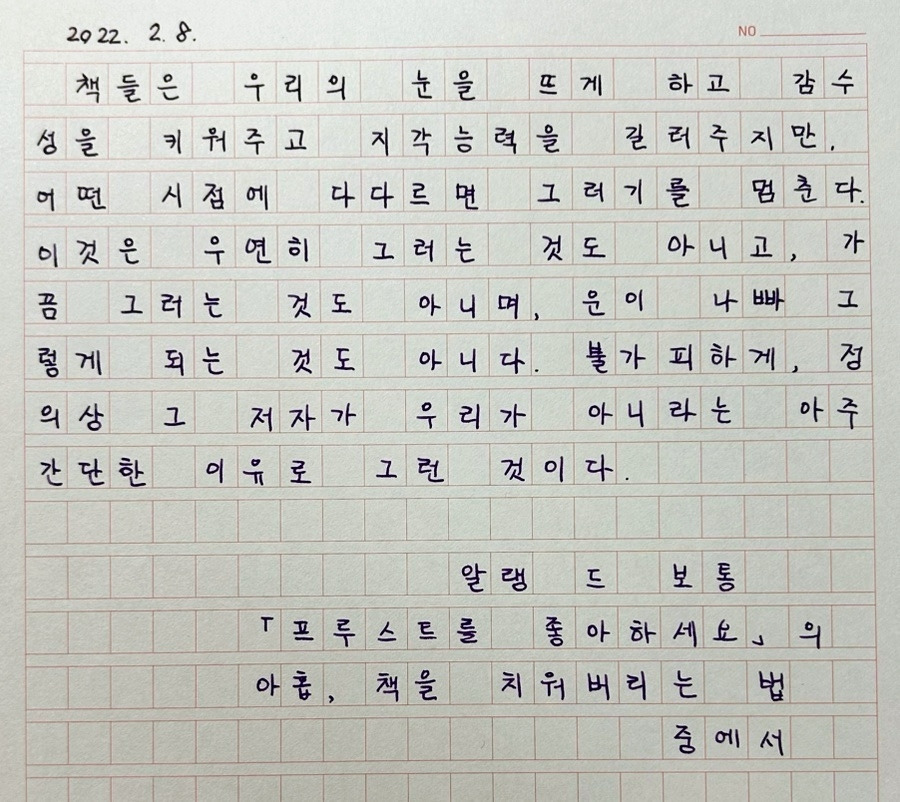 2022. 2. 8.
NO
책들은 우리의 눈을 뜨게 하고 감수
성을 키워주고 지각능력을 길러주지만,
어떤 시점에 다다르면 그러기를 멈춘다.
이것은 우연히 그러는 것도 아니고, 가
끔 그러는 것도 아니며, 운이 나빠 그
렇게 되는 것도 아니다. 불가피하게, 정
의상 그 저자가 우리가 아니라는 아주
간단한 이유로 그런 것이다.
알랭 드 보통
「프루스트를 좋아하세요」의
아홉, 책을 치워버리는 법
중에서